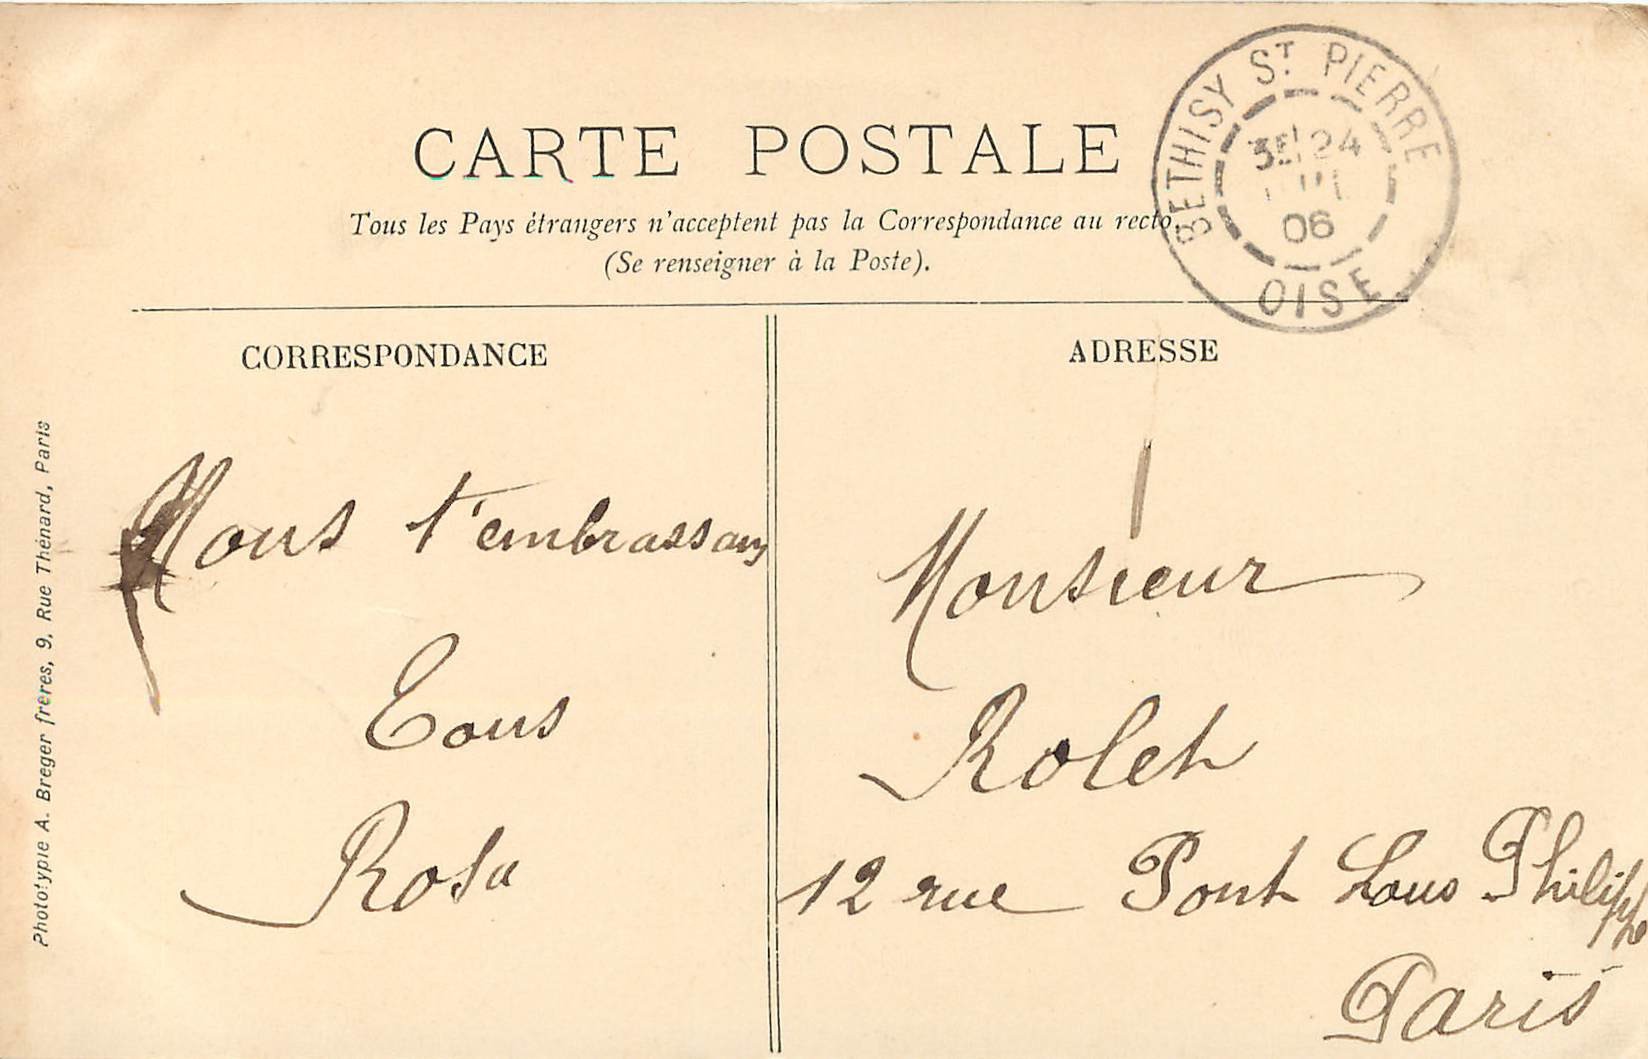 CARTE POSTALE
Tous les Pays étrangers n'acceptent pas la Correspondance au recto.
(Se renseigner à la Poste).
BETHISY ST PIERRE
3E 24
06
OISE
CORRESPONDANCE
Nous t'embrassons
Tous
Rosa
ADRESSE
Monsieur
Rolet
12 rue Pont Lous Philippe
Paris
Phototypie A. Breger frères, 9, Rue Thénard, Paris